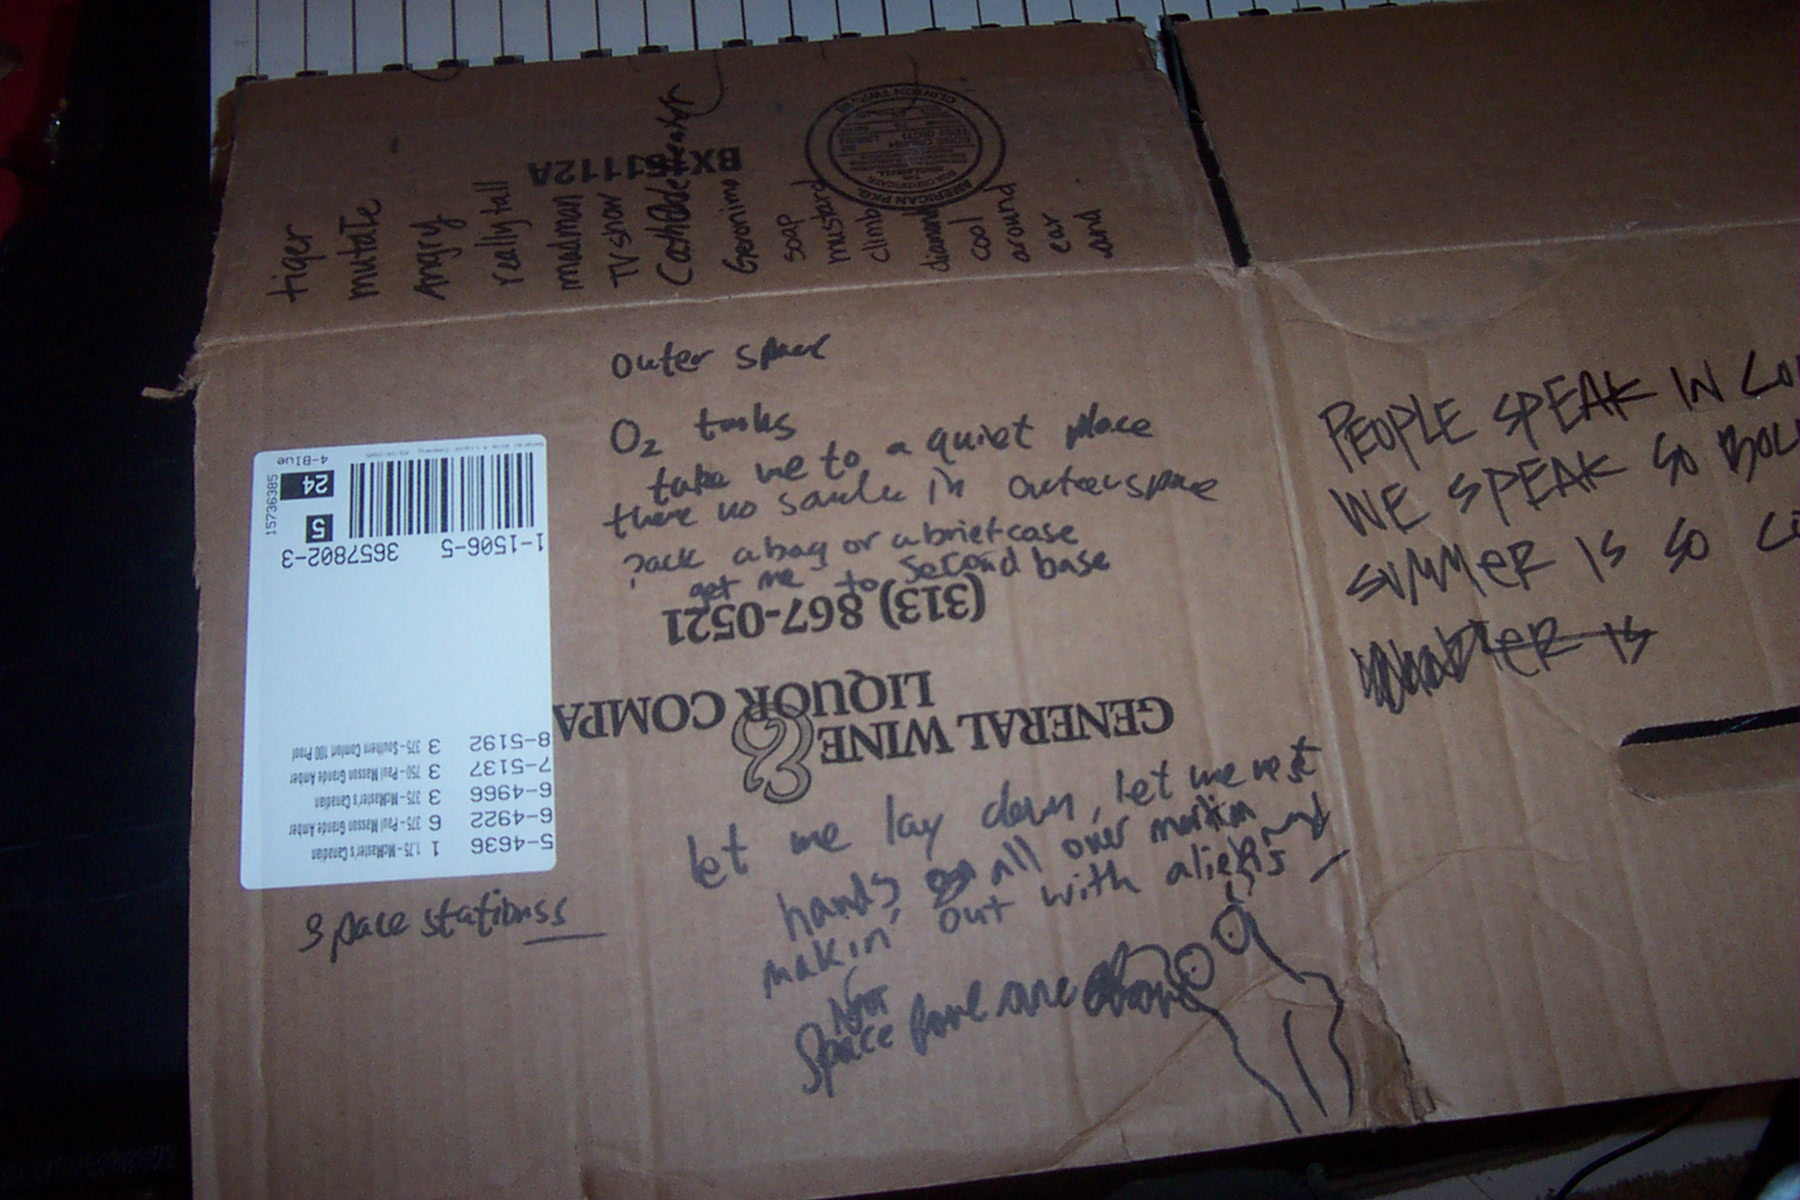 tiger
mutate
Angry
really tall
madman
TV show
Geronimo
soap
mustard
climb
diamond
cool
around
ear
and
BX 51112A
AMERICAN PKG.
CLINTON TWP.
outer space
O2 tanks
take me to a quiet place
there no in outerspace
Pack a bag or a briefcase
get me to second base
(313) 867-0521
GENERAL WINE
&
LIQUOR COMPA
let me lay down, let me rest
hands all over martian
makin' out with aliens
Not
Space are
space stationss
4-Blue
24
5
15736385
1-1506-5 3657802-3
5-4636 1 1.75-McMaster's Canadian
6-4922 6 375-Paul Masson Grande Amber
6-4966 3 375-McMaster's Canadian
7-5137 3 750-Paul Masson Grande Amber
8-5192 3 375-Southern Comfort 100 Proof
PEOPLE SPEAK IN
WE SPEAK SO
SUMMER IS SO
IS